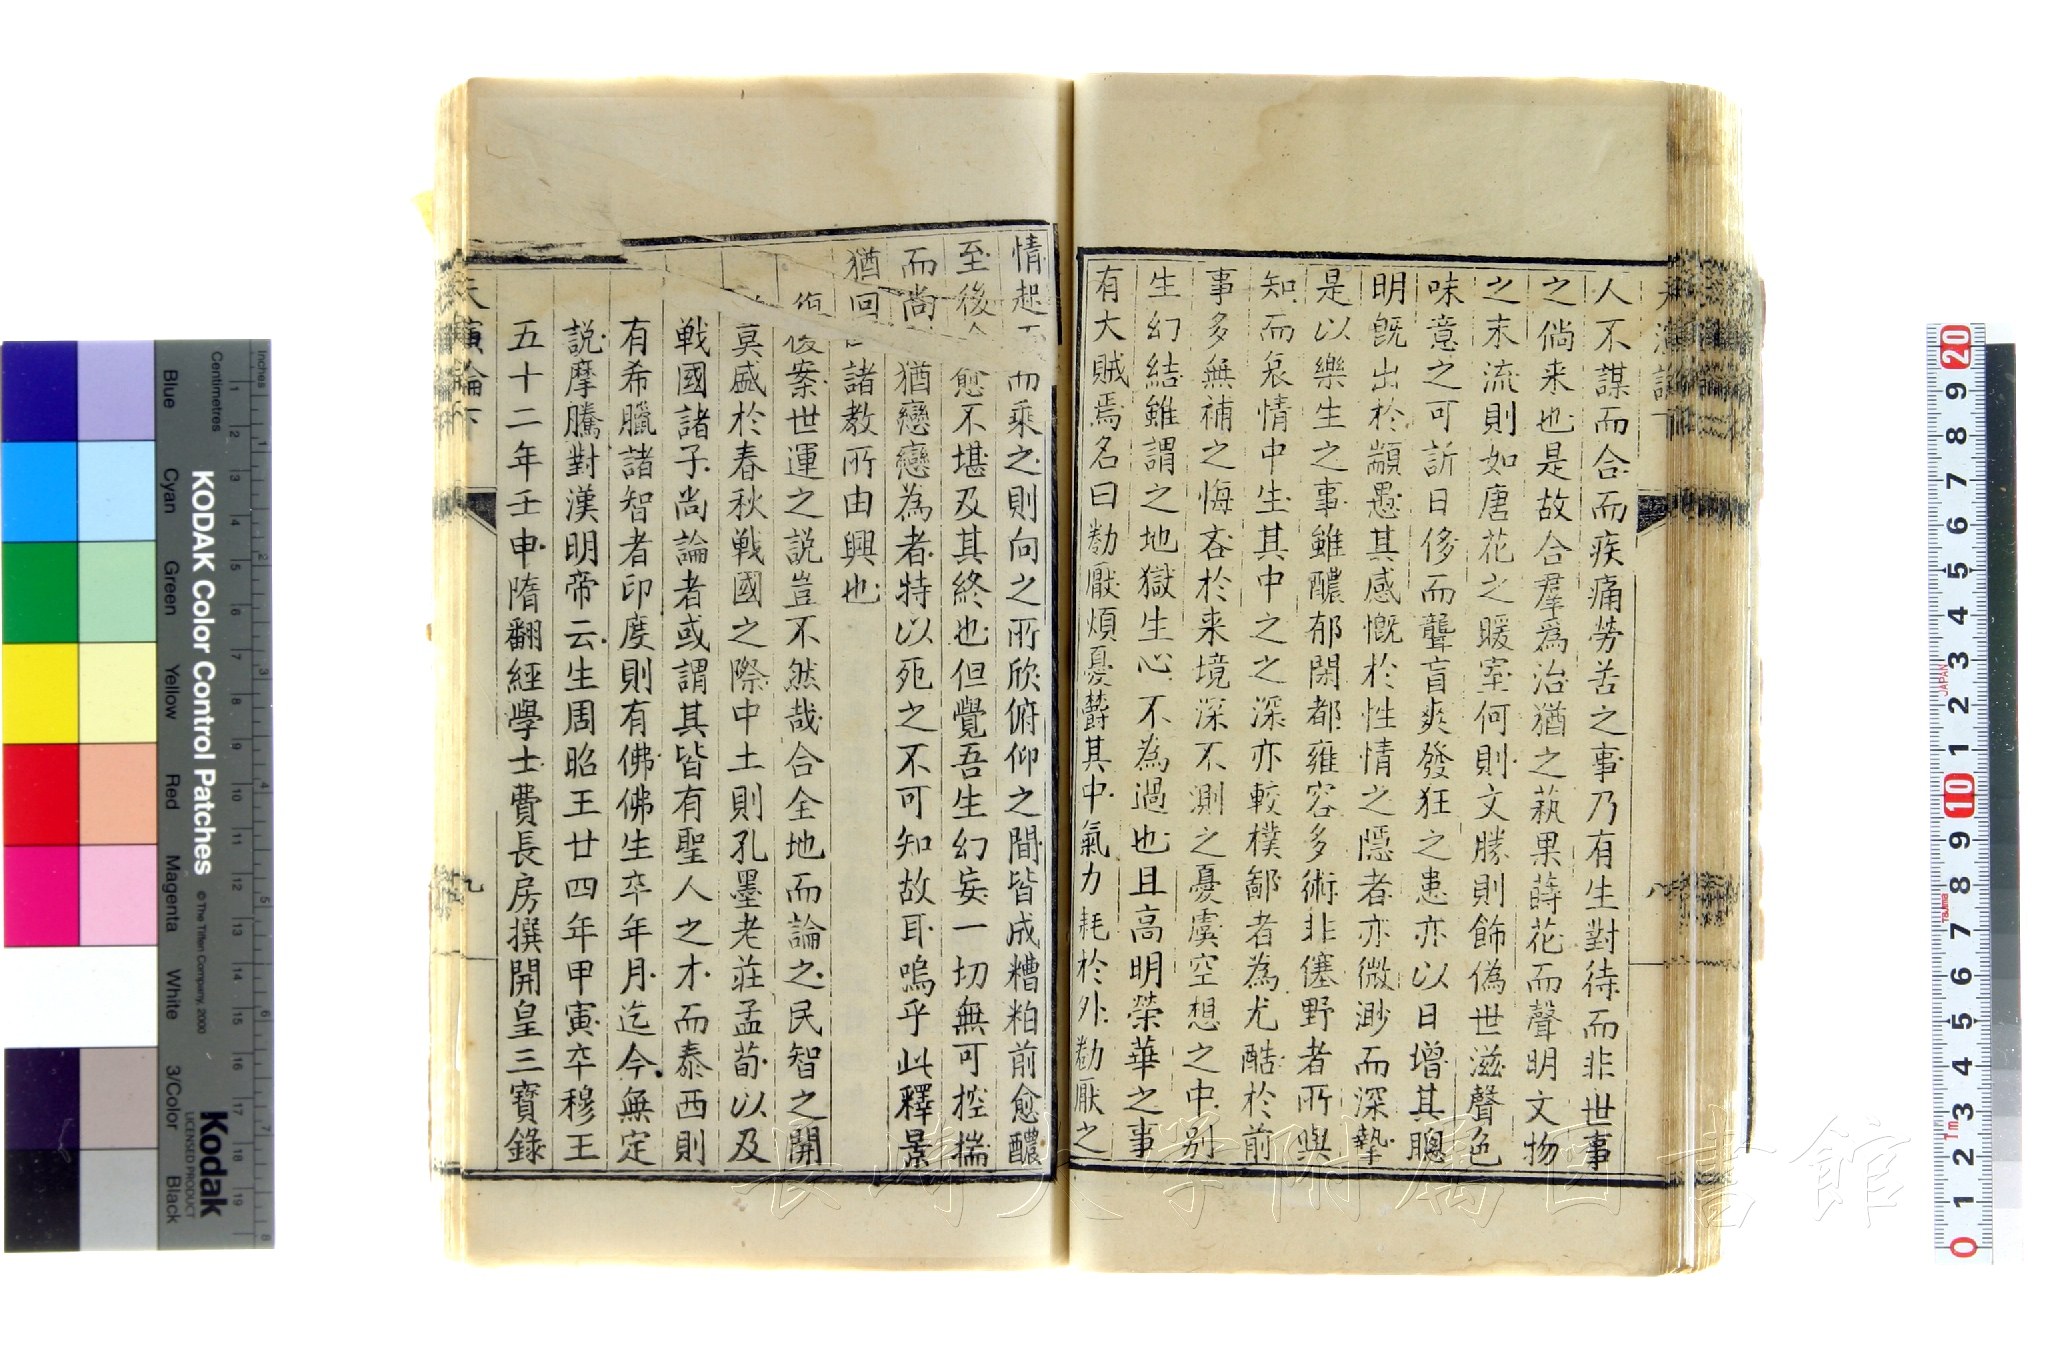 人不謀而合而疾痛勞苦之事乃有生對待而非世事
之倘来也是故合羣爲治猶之蓺果蒔花而聲明文物
之末流則如唐花之暖室何則文勝則飾偽世滋聲色
味意之可訢日侈而聾盲爽發狂之患亦以日增其聰
明旣出於顓愚其感慨於性情之隱者亦微渺而深摯
是以樂生之事雖醲郁閑都雍容多術非僿野者所與
知而哀情中生其中之之深亦較樸鄙者為尤酷於前
事多無補之悔吝於来境深不測之憂虞空想之中別
生幻結雖謂之地獄生心不為過也且高明榮華之事
有大賊焉名曰勌厭煩憂欝其中氣力耗於外勌厭之
八
情起而乘之則向之所欣俯仰之間皆成糟粕前愈醲
至後愈不堪及其終也但覺吾生幻妄一切無可控揣
而尚猶戀戀為者特以死之不可知故耳嗚乎此釋景
猶回諸教所由興也
復案世運之說豈不然哉合全地而論之民智之開
莫盛於春秋戰國之際中土則孔墨老莊孟荀以及
戰國諸子尚論者或謂其皆有聖人之才而泰西則
有希臘諸智者印度則有佛佛生卒年月迄今無定
說摩騰對漢明帝云生周昭王廿四年甲寅卒穆王
五十二年壬申隋翻經學士費長房撰開皇三寶錄
天演論下
九
KODAK Color Control Patches
© The Tiffen Company, 2000
Kodak
LICENSED PRODUCT
Inches
Centimetres
Blue
Cyan
Green
Yellow
Red
Magenta
White
3/Color
Black
長崎大学附属図書館
JAPAN